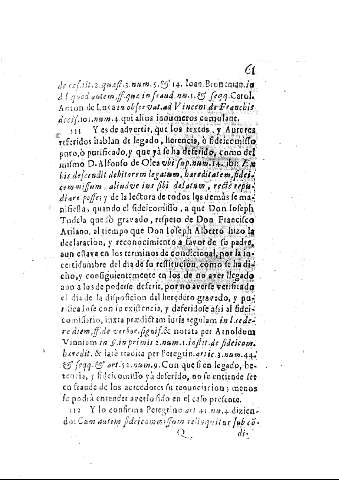 61
de cessit. 2. quæst. 3. num. 5. & 14. Ioan. Brunneman. in
d. l. quod autem. ff. quæ in fraud. nu. 1. & seqq. Carol.
Anton de Luca in observat. ad Vincent. de Franchis
decis. 101. num. 4. qui alios inoumeros cumulant.
111 Y es de advertir, que los textos, y Autores
referidos hablan de legado, herencia, ò fideicomisso
puro, ò purificado, y que yà se ha deferido, como del
mismo D. Alfonso de Olea ubi sup. num. 14. ibi: Ex
his descendit debitorem legatum, hæreditatem, fidei-
comissum, aliudve ius sibi delatum, rectè repu-
diare posse; y de la lectura de todos los demàs se ma-
nifiesta, quando el fideicomisso, a que Don Joseph
Tudela que sò gravado, respeto de Don Francisco
Aulano, al tiempo que Don Joseph Alberto hizo la
declaracion, y reconocimiento a favor de su padre,
aun estava en los terminos de condicional, por la in-
certidumbre del dia de su restitucion, como se ha di-
cho, y consiguientemente en los de no aver llegado
aun a los de poderse deferir, por no averse verificado
el dia de la disposicion del heredero gravado, y pu-
rificadose con la existencia, y daferidose assi al fidei-
comissario, iuxta prædictam iuris regulam, in l. cede-
re diem, ff. de verbor. signif. & notata per Arnoldum
Vinnium in §. in primis 2. num. 1. instit. de fideicom.
heredit. & latè tradita per Peregrin. artic. 3. num. 44.
& seqq. & art. 52. num. 9. Con que si en legado, he-
rencia, y fideicomisso yà deferido, no se entiende ser
en fraude de los acreedores su renunciacion; menos
se podrà entender averlo sido en el caso presente.
112 Y lo confirma Peregrino art. 41. nu. 4. dizien-
do: Cum autem fideicommissum relinquitur sub cō-
Q di-